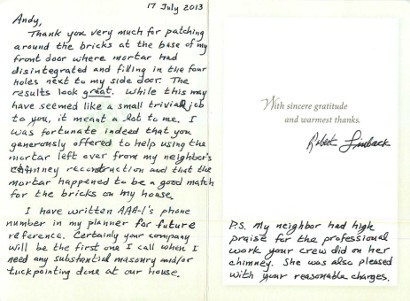 17 July 2013
Andy,
Thank you very much for patching
around the bricks at the base of my
front door where mortar had
disintegrated and filling in the four
holes next to my side door. The
results look great. While this may
have seemed like a small trivial job
to you, it meant a lot to me. I
was fortunate indeed that you
generously offered to help using the
mortar left over from my neighbor's
chimney reconstruction and that the
mortar happened to be a good match
for the bricks on my house.
I have written AAA-1's phone
number in my planner for future
reference. Certainly your company
will be the first one I call when I
need any substantial masonry and/or
tuckpointing done at our house.
With sincere gratitude
and warmest thanks.
P.S. My neighbor had high
praise for the professional
work your crew did on her
chimney. She was also pleased
with your reasonable charges.